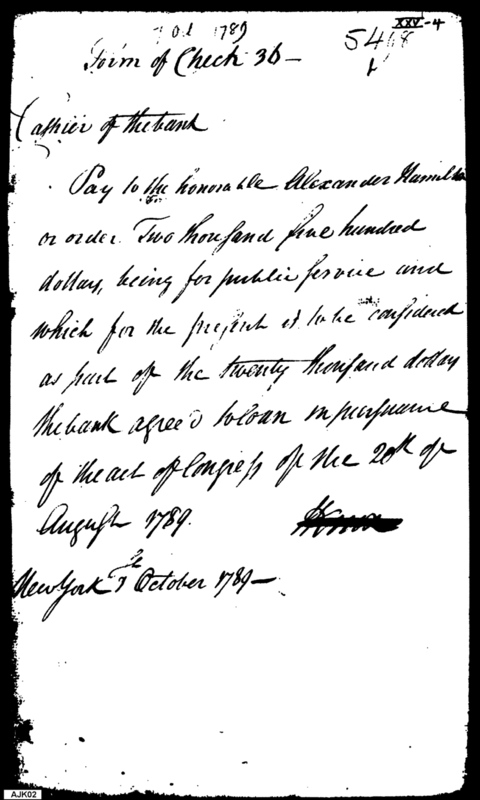 7 Oct 1789
XXV-4
5468
Form of Check 3b -
Cashier of the bank
Pay to the honorable Alexander Hamilton
or order. Two thousand five hundred
dollars, being for public service and
which for the present is to be considered
as part of the twenty thousand dollars
the bank agree'd to loan in pursuance
of the act of Congress of the 20th of
August 1789.
HKnox
New York 7 October 1789 -
AJK02